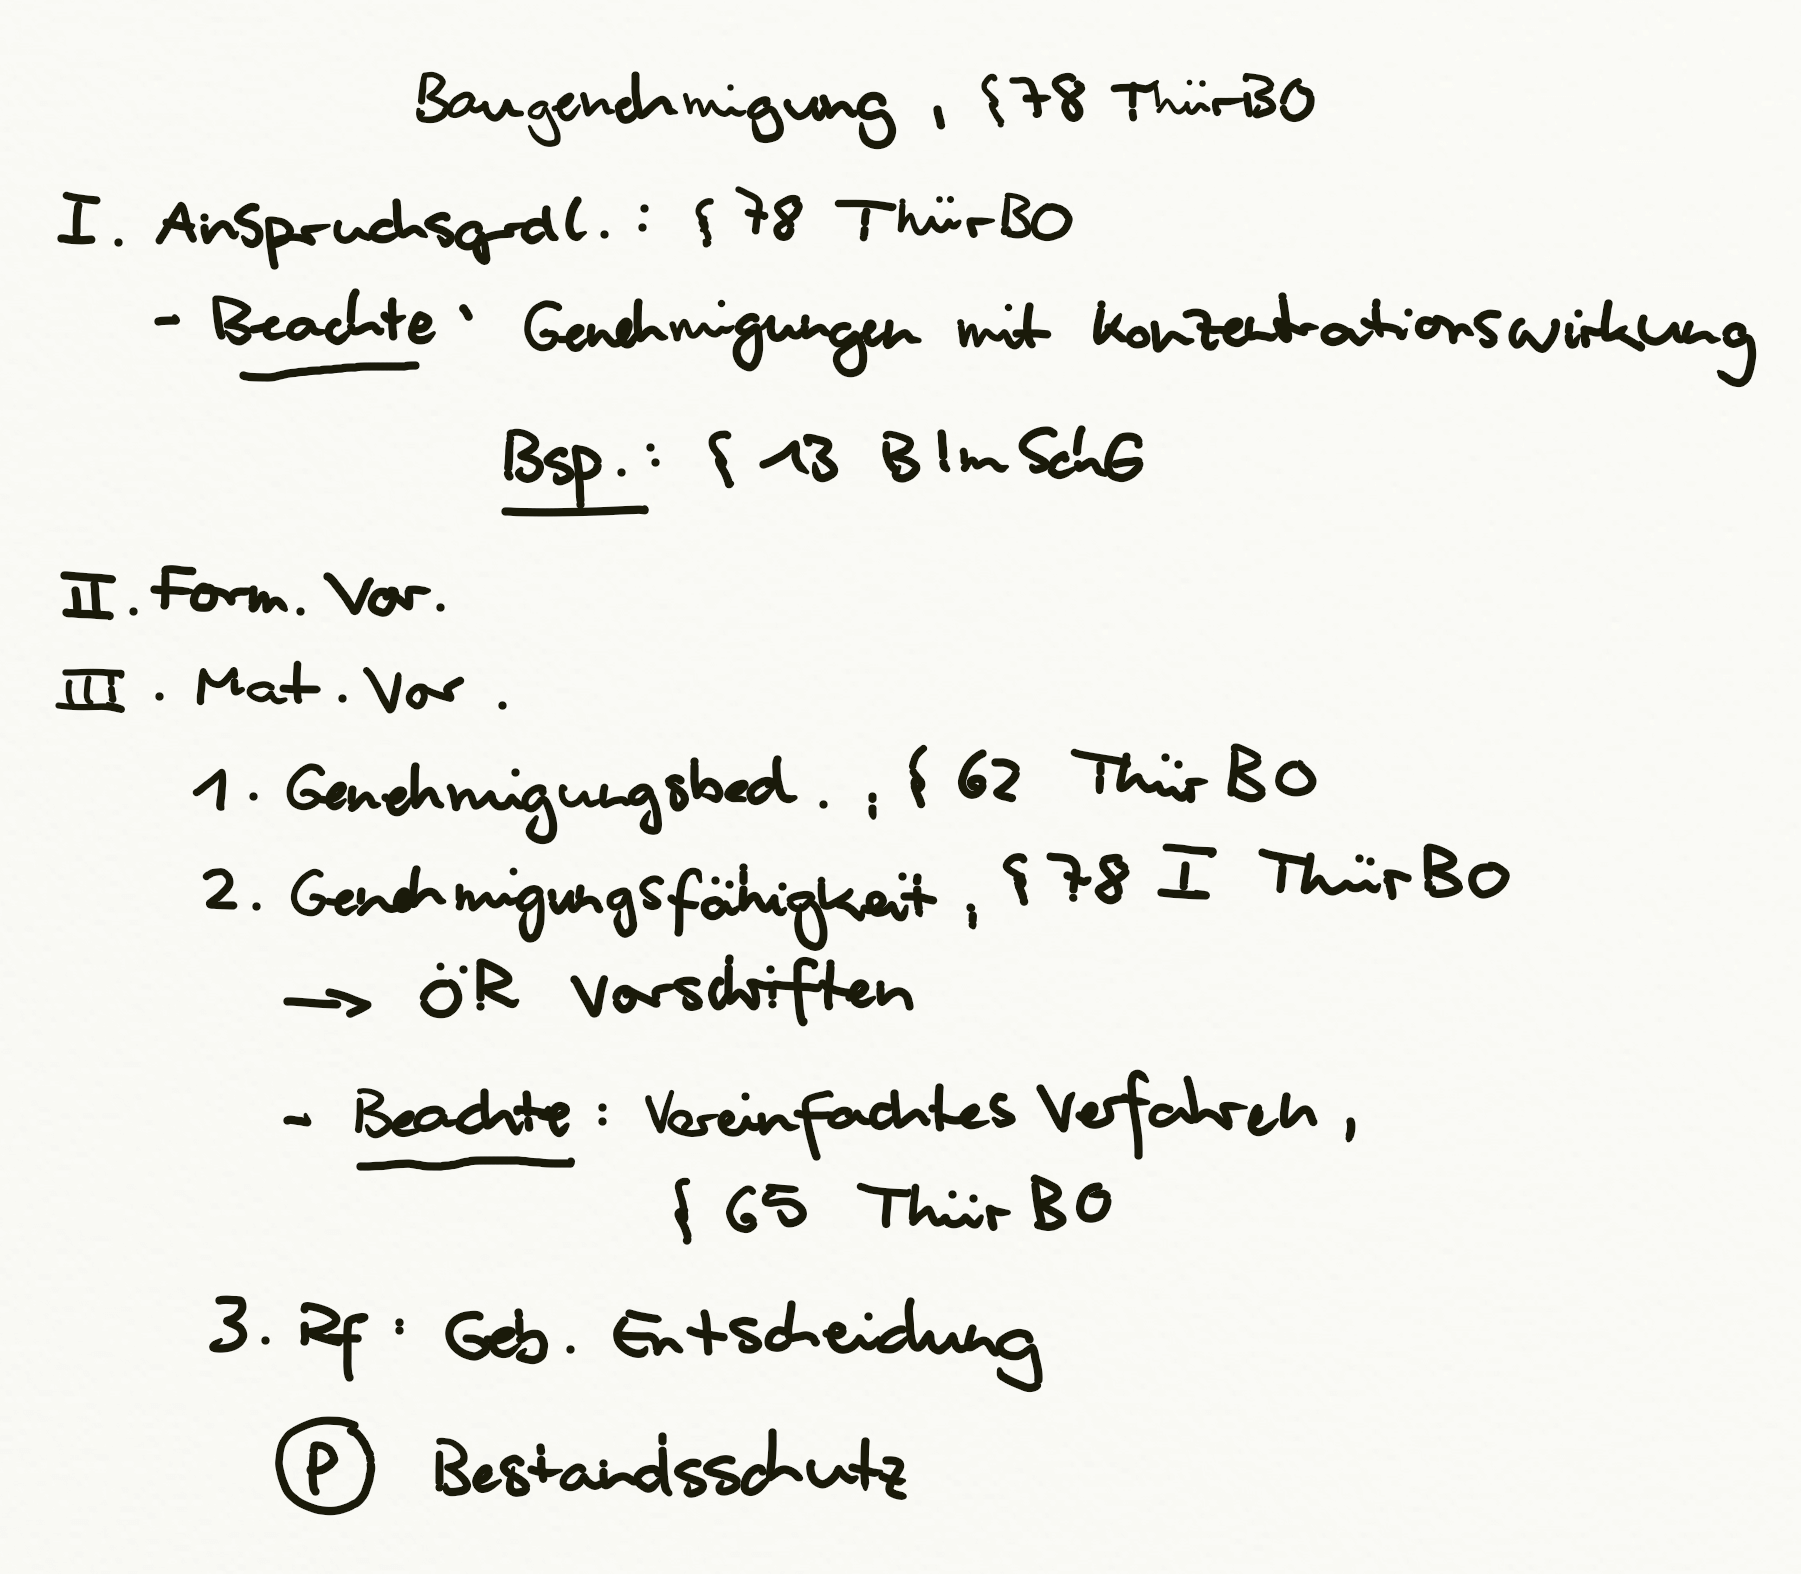 Baugenehmigung, § 78 ThürBO
I. Anspruchsgrdl.: § 78 ThürBO
- Beachte: Genehmigungen mit Konzentrationswirkung
Bsp.: § 13 BImSchG
II. Form. Vor.
III. Mat. Vor.
1. Genehmigungsbed., § 62 ThürBO
2. Genehmigungsfähigkeit, § 78 I ThürBO
→ ÖR Vorschriften
- Beachte: Vereinfachtes Verfahren,
§ 65 ThürBO
3. Rf: Geb. Entscheidung
Ⓟ Bestandsschutz